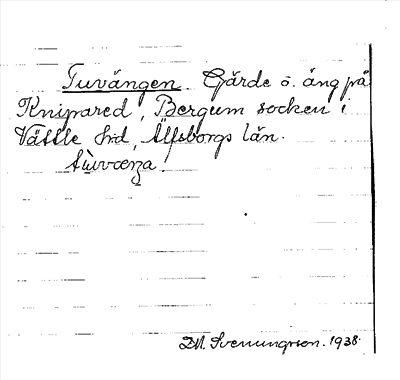 Tuvängen. Gärde o. äng på
Knipared, Bergum socken i
Vättle hd, Älfsborgs län.
tùvæŋa.
D.M. Svenungsson. 1938.